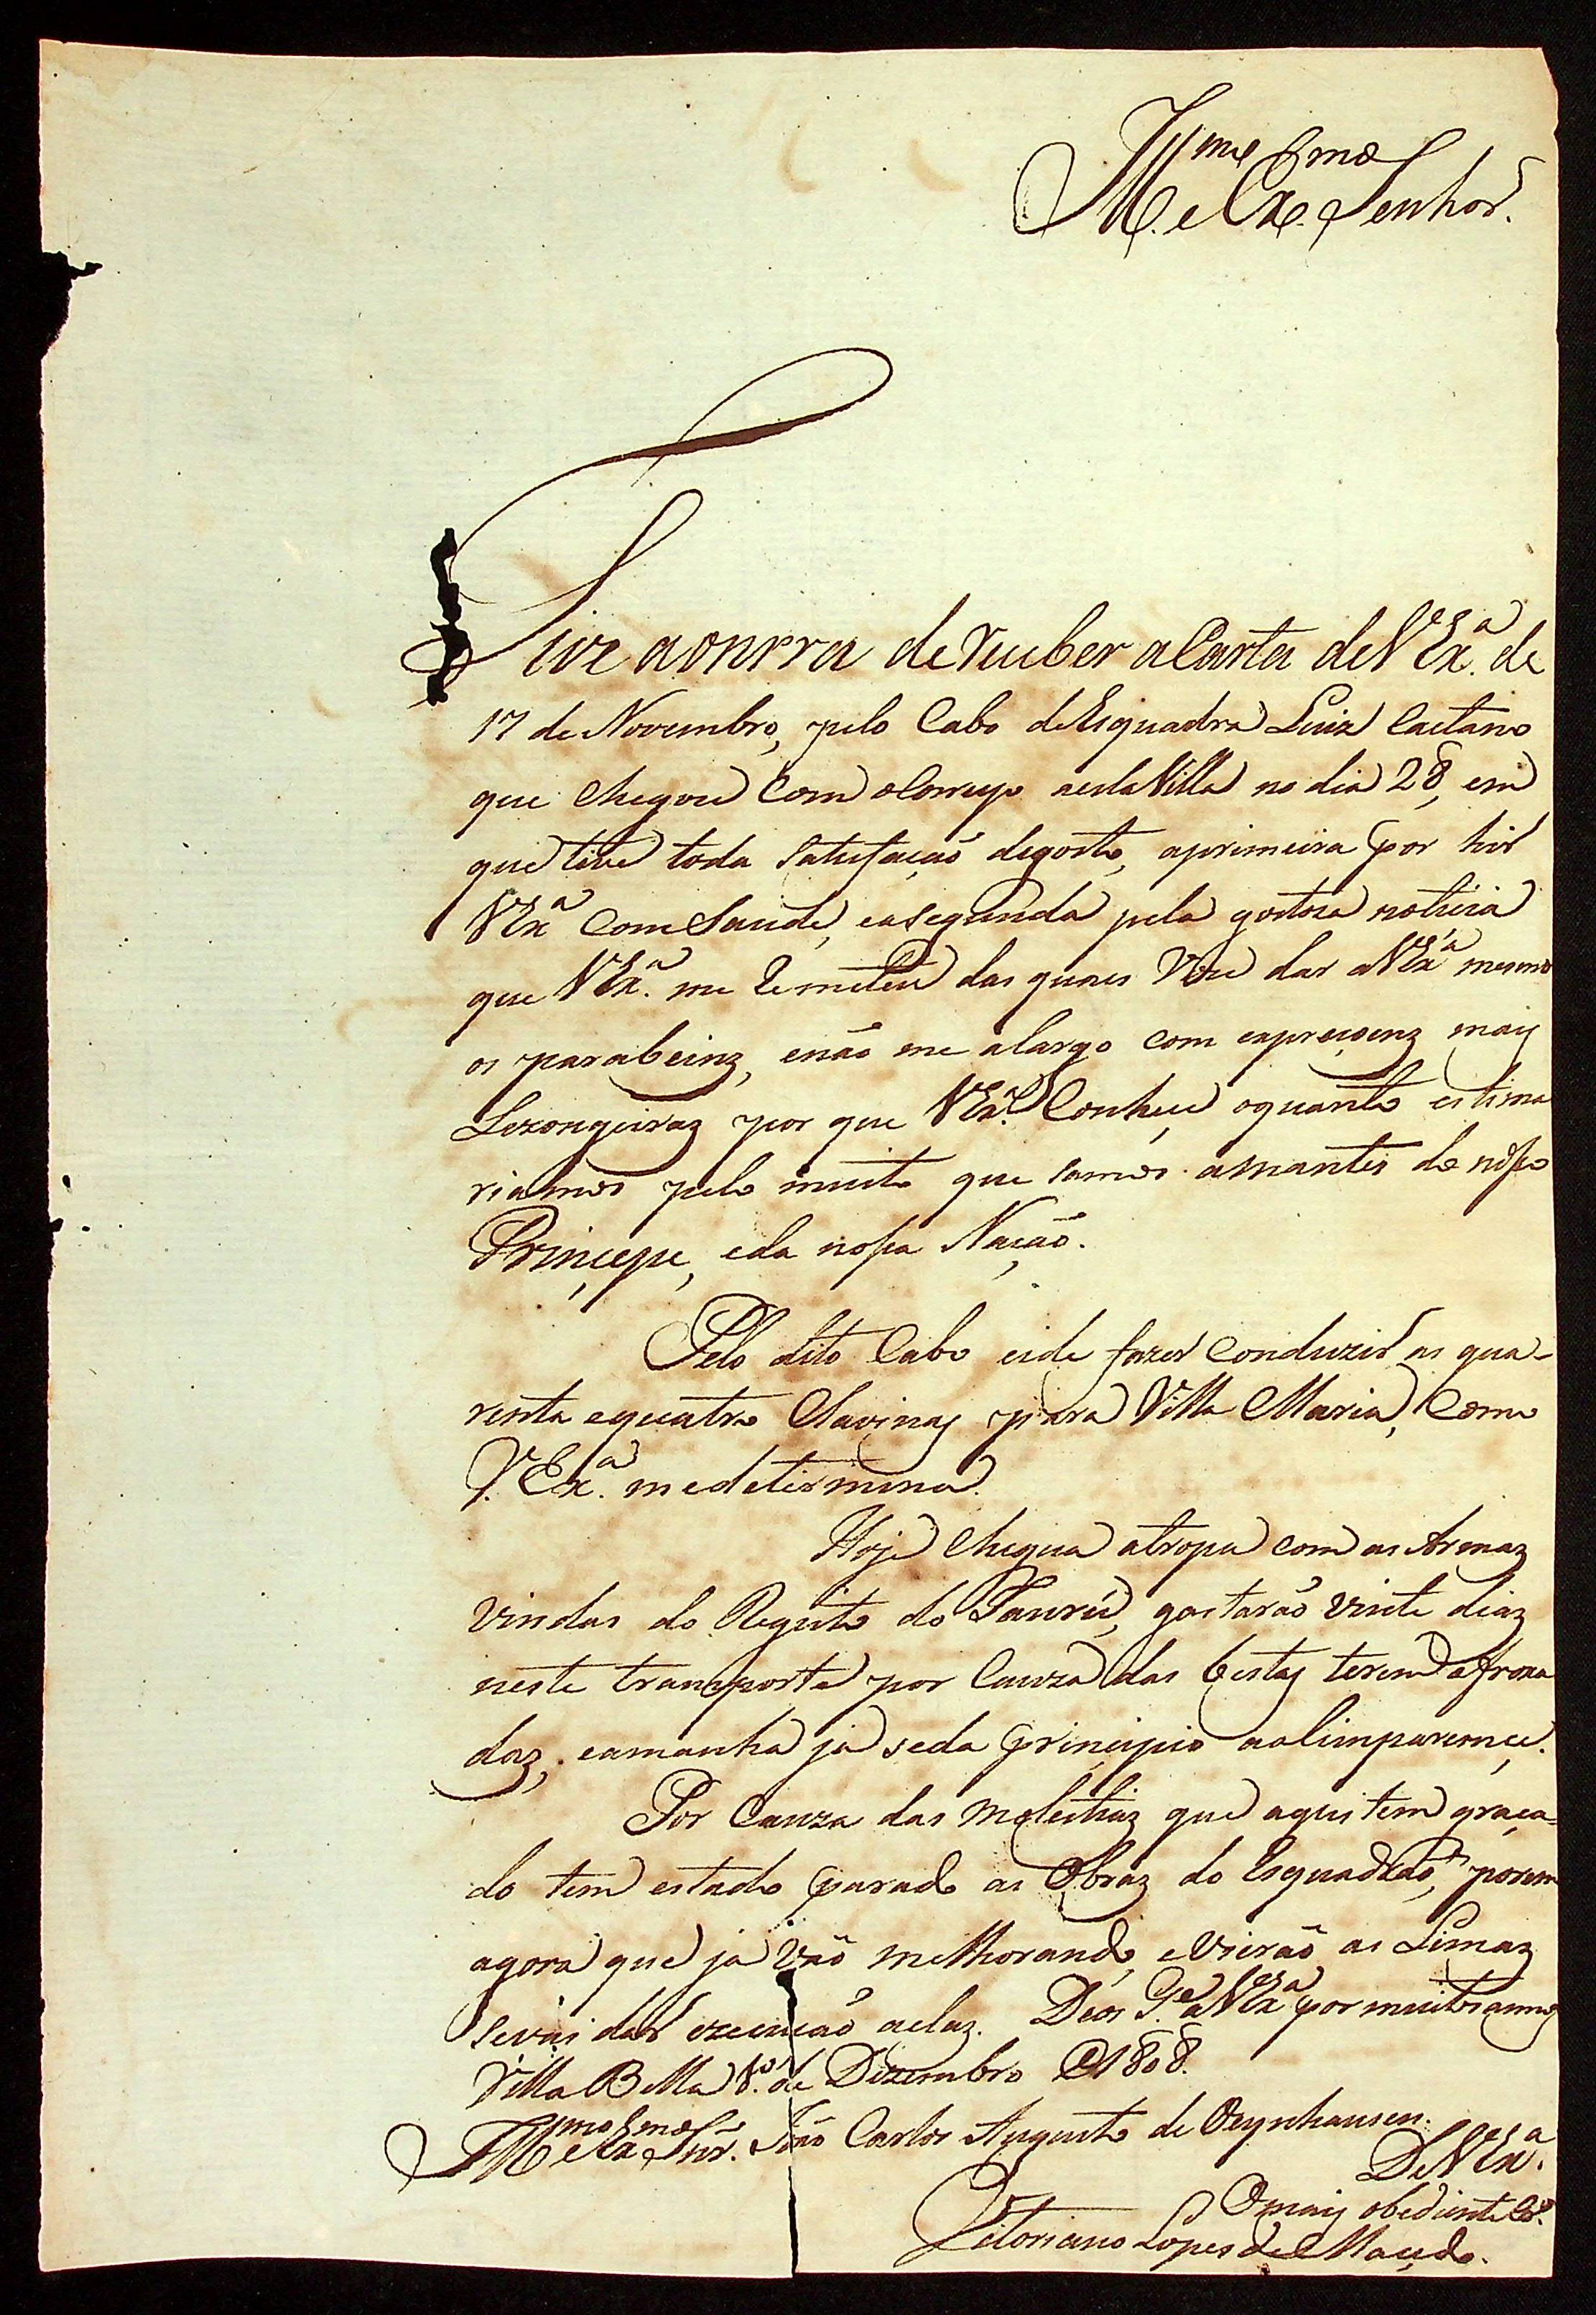 Ill.mo e Ex.mo Senhor.
Tive aonrra de Receber aCarta deVEx.a de
17 de Novembro, pelo Cabo deEsquadra Luiz Caetano
que chegou com oCorreyo nestaVilla no dia 28, em
que tive toda satisfação degosto, aprimeira por hir
VEx.a com Saude, easegunda pela gostoza noticia
que VEx.a me Remeteu das quaes Vou dar aVEx.a mesmo
os parabeinz, enão me alargo com expreçoenz maiz
Lizongeiraz por que VEx.a Conheçe oquanto estima
riamos pelo muito que somos amantes do nosso
Prinçepe, eda nossa Nação.
Pelo dito Cabo eide fazer Conduzir as qua-
renta equatro Clavinaz para Villa Maria, Como
V.Ex.a medetermina.
Hoje chegua atropa com as Armaz
vindas do Registo do Jaurú, gastarão vinte diaz
neste transporte por Cauza das bestaz terem afroxa
daz, eamanha ja seda principio aalimparemçe.
Por Cauza das molestiaz que aqui tem graça-
do tem estado parado as Obraz do Esquadrão, porem
agora que ja vão melhorando, eVierão as Limaz
sevai dar ezecução aelaz. Deos G.e aVEx.a por muitos annos
Villa Bella 8.o de Dizembro de 1808.
Ill.mo e Ex.mo Snr. João Carlos Augusto de Oeynhausen.
DeVEx.a
Omaiz obediente Cr.o
Vitoriano Lopes de Maçedo.